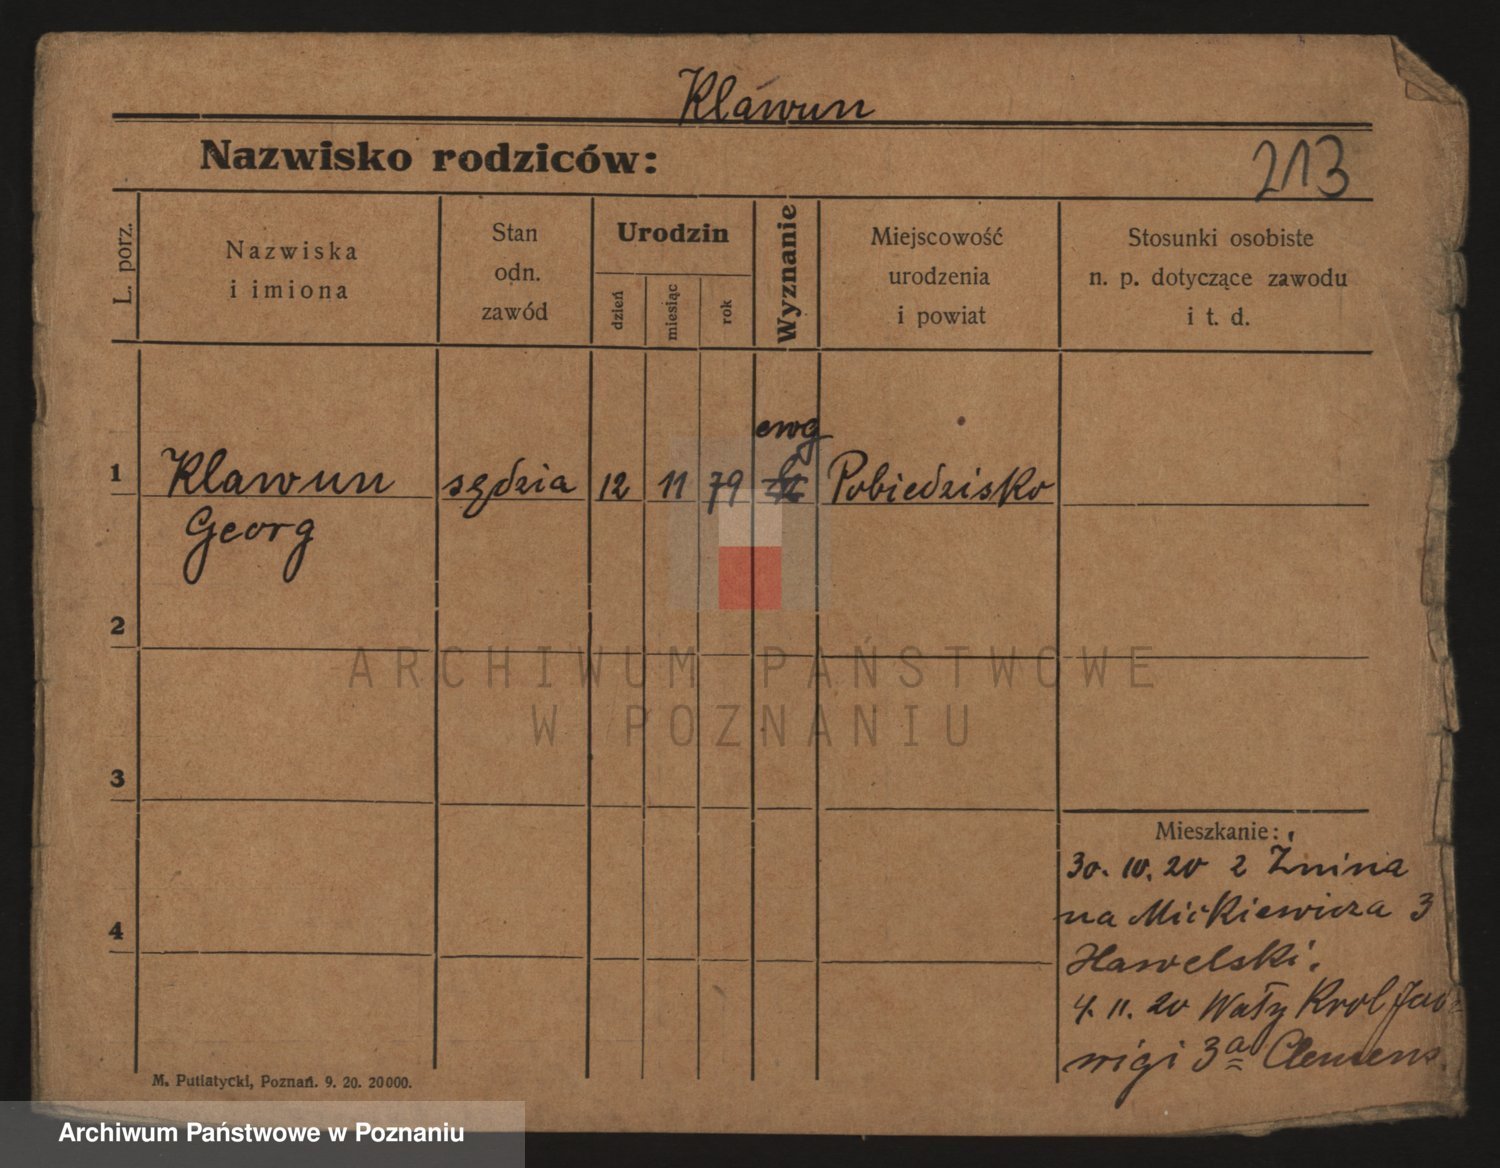 Klawun
Nazwisko rodziców:
213
L. porz.
Nazwiska
i imiona
Stan
odn.
zawód
Urodzin
dzień
miesiąc
rok
Wyznanie
Miejscowość
urodzenia
i powiat
Stosunki osobiste
n. p. dotyczące zawodu
i t. d.
ewg
1 Klawun sędzia 12 11 79 Pobiedzisko
Georg
2
3
4
Mieszkanie:
30. 10. 20 z Żnina
na Mickiewicza 3
Hawelski.
4. 11. 20 Wały Krol Jad
wigi 3a Clemens
M. Putiatycki, Poznań. 9. 20. 20000.
ARCHIWUM PAŃSTWOWE
W POZNANIU
Archiwum Państwowe w Poznaniu